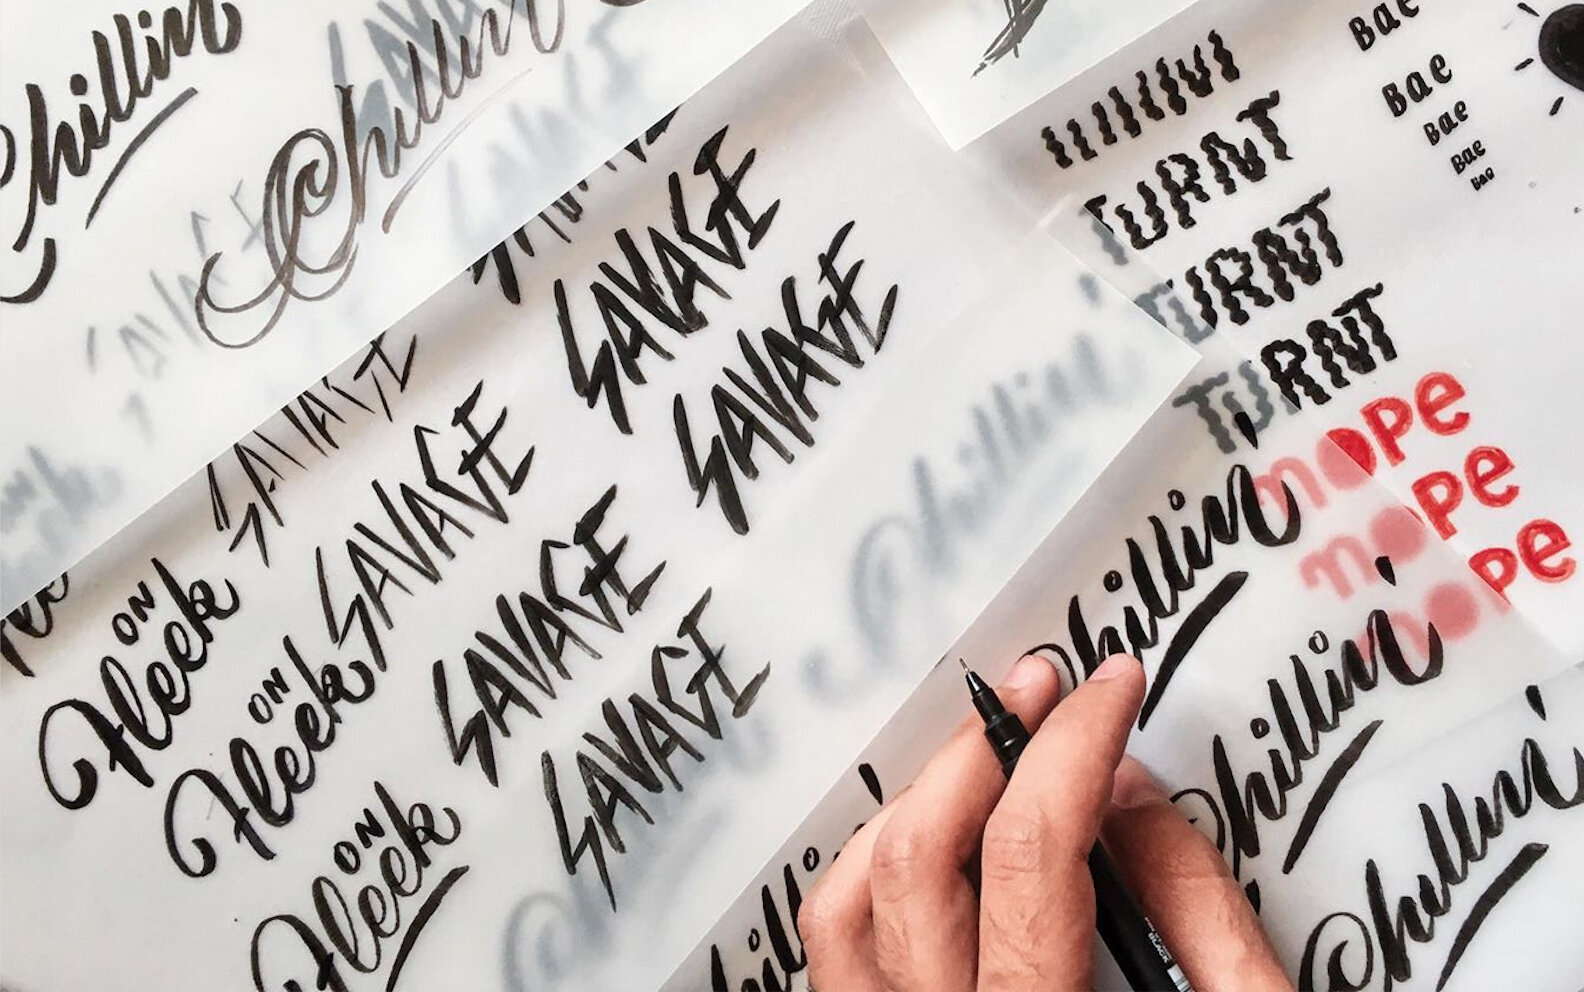 Chillin
Chillin
SAVAGE
SAVAGE
SAVAGE
SAVAGE
SAVAGE
SAVAGE
SAVAGE
ON
Fleek
ON
Fleek
ON
Fleek
Bae
Bae
Bae
Bae
Bae
TURNT
TURNT
TURNT
nope
nope
nope
Chillin'
Chillin'
Chillin'
Chillin'
Chillin
BLACK